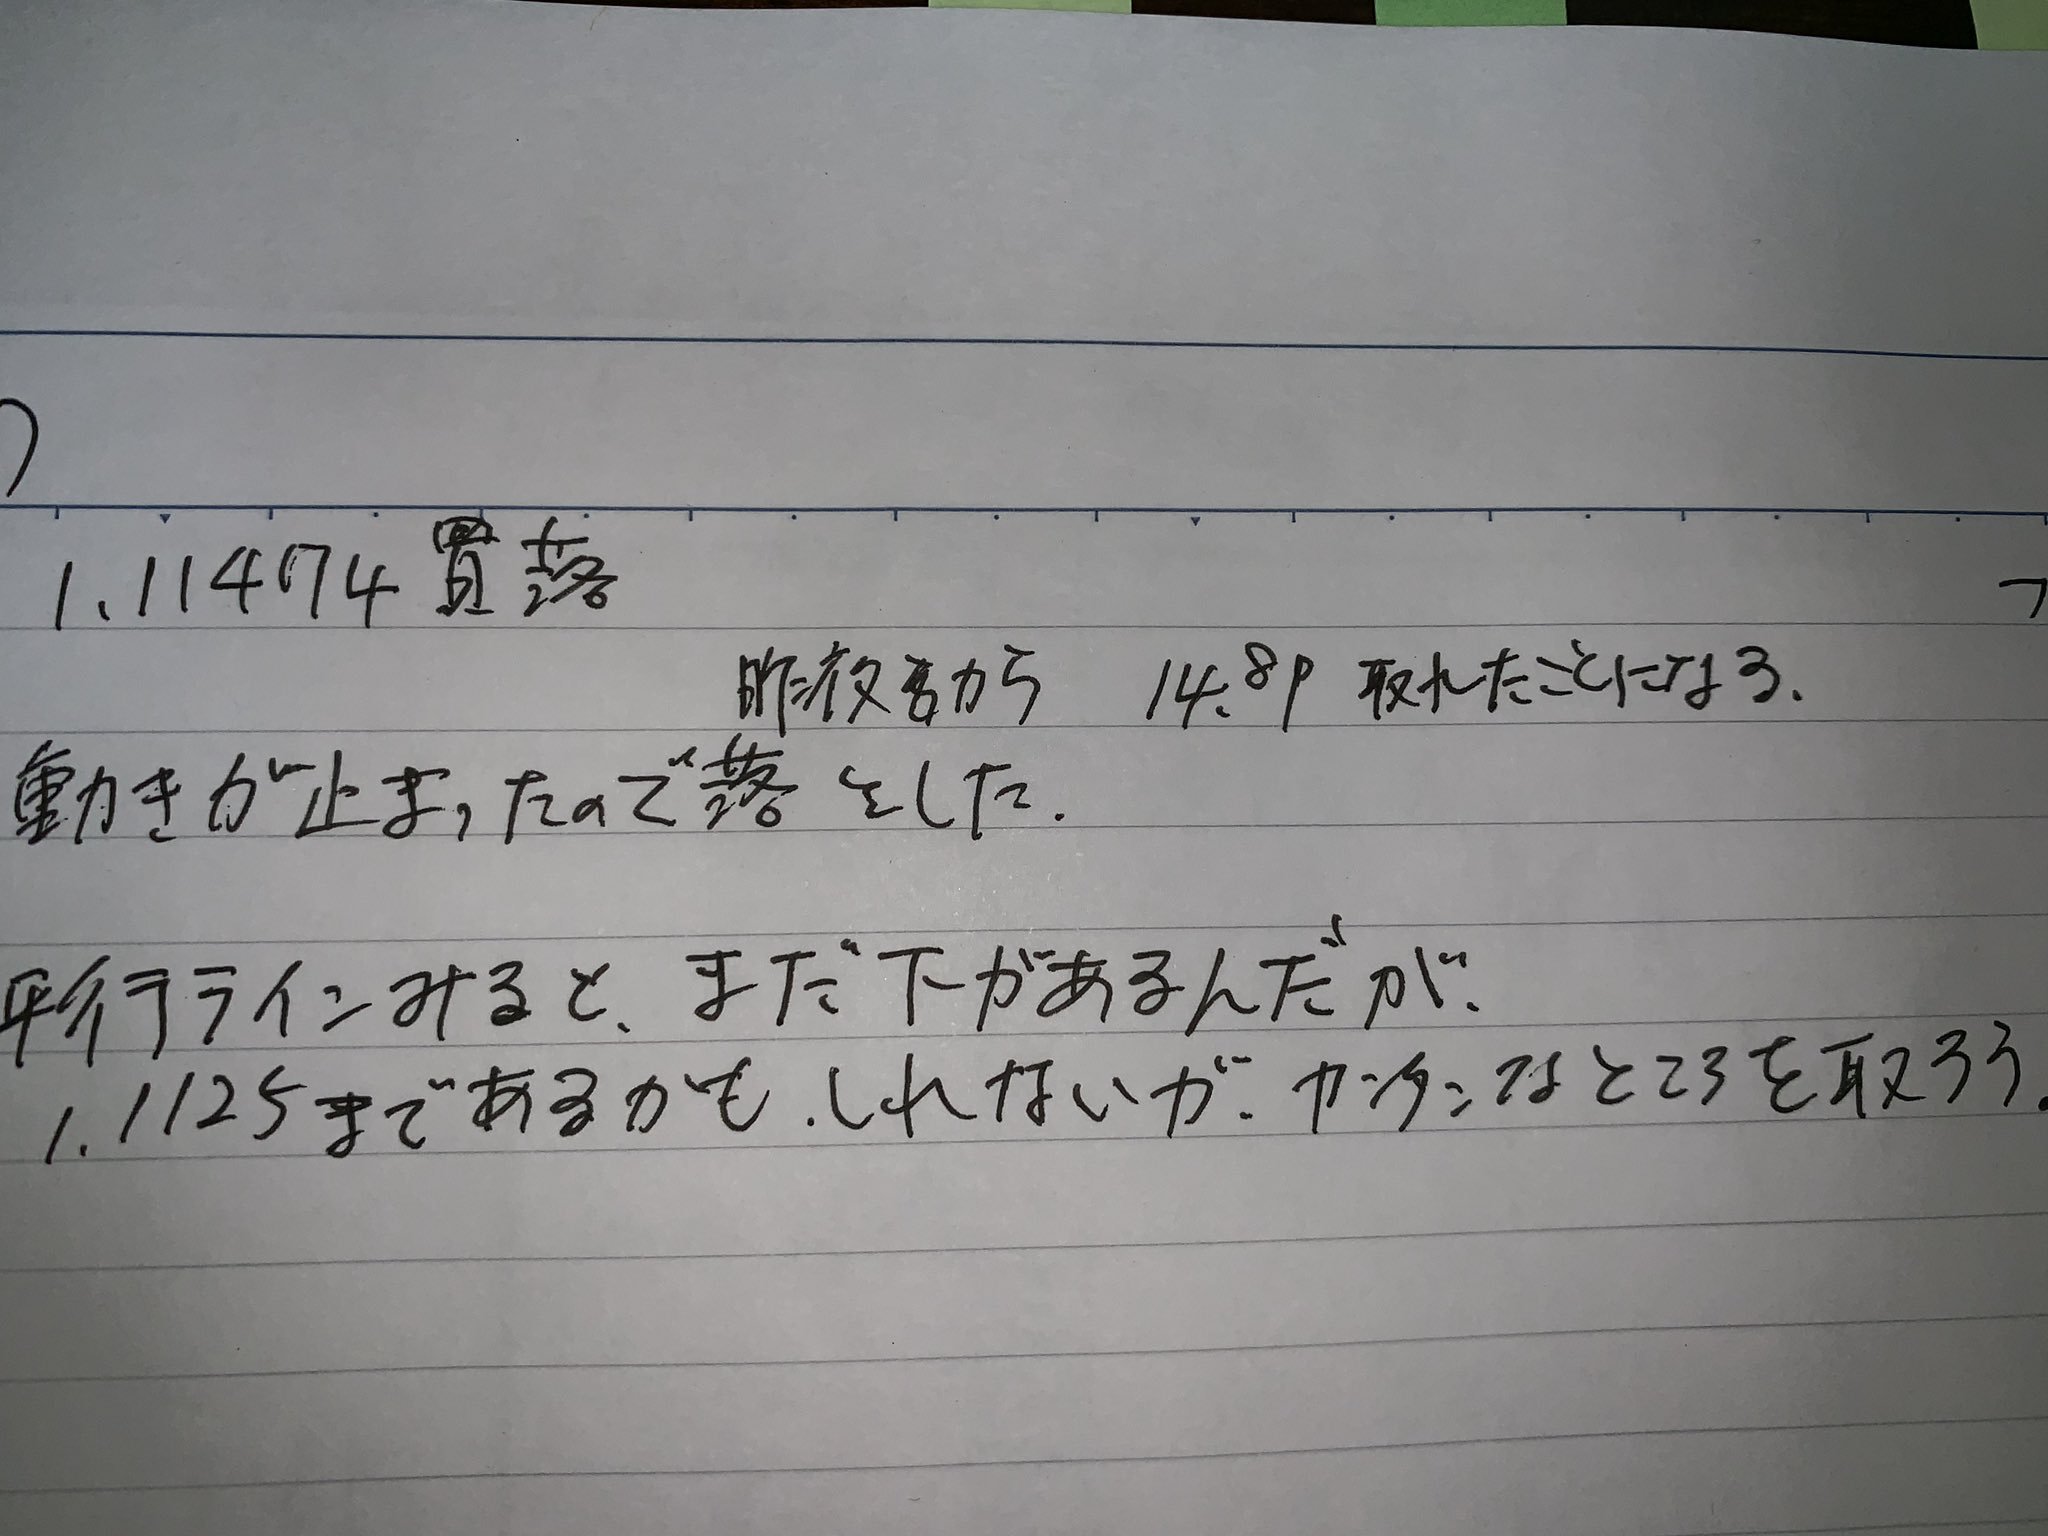 1.11474買落
昨夜から 14.8P 取れたことになる.
動きが止まったので落とした.
平行ラインみると、まだ下があるんだが、
1.1125まであるかもしれないが、カンタンなところを取ろう.